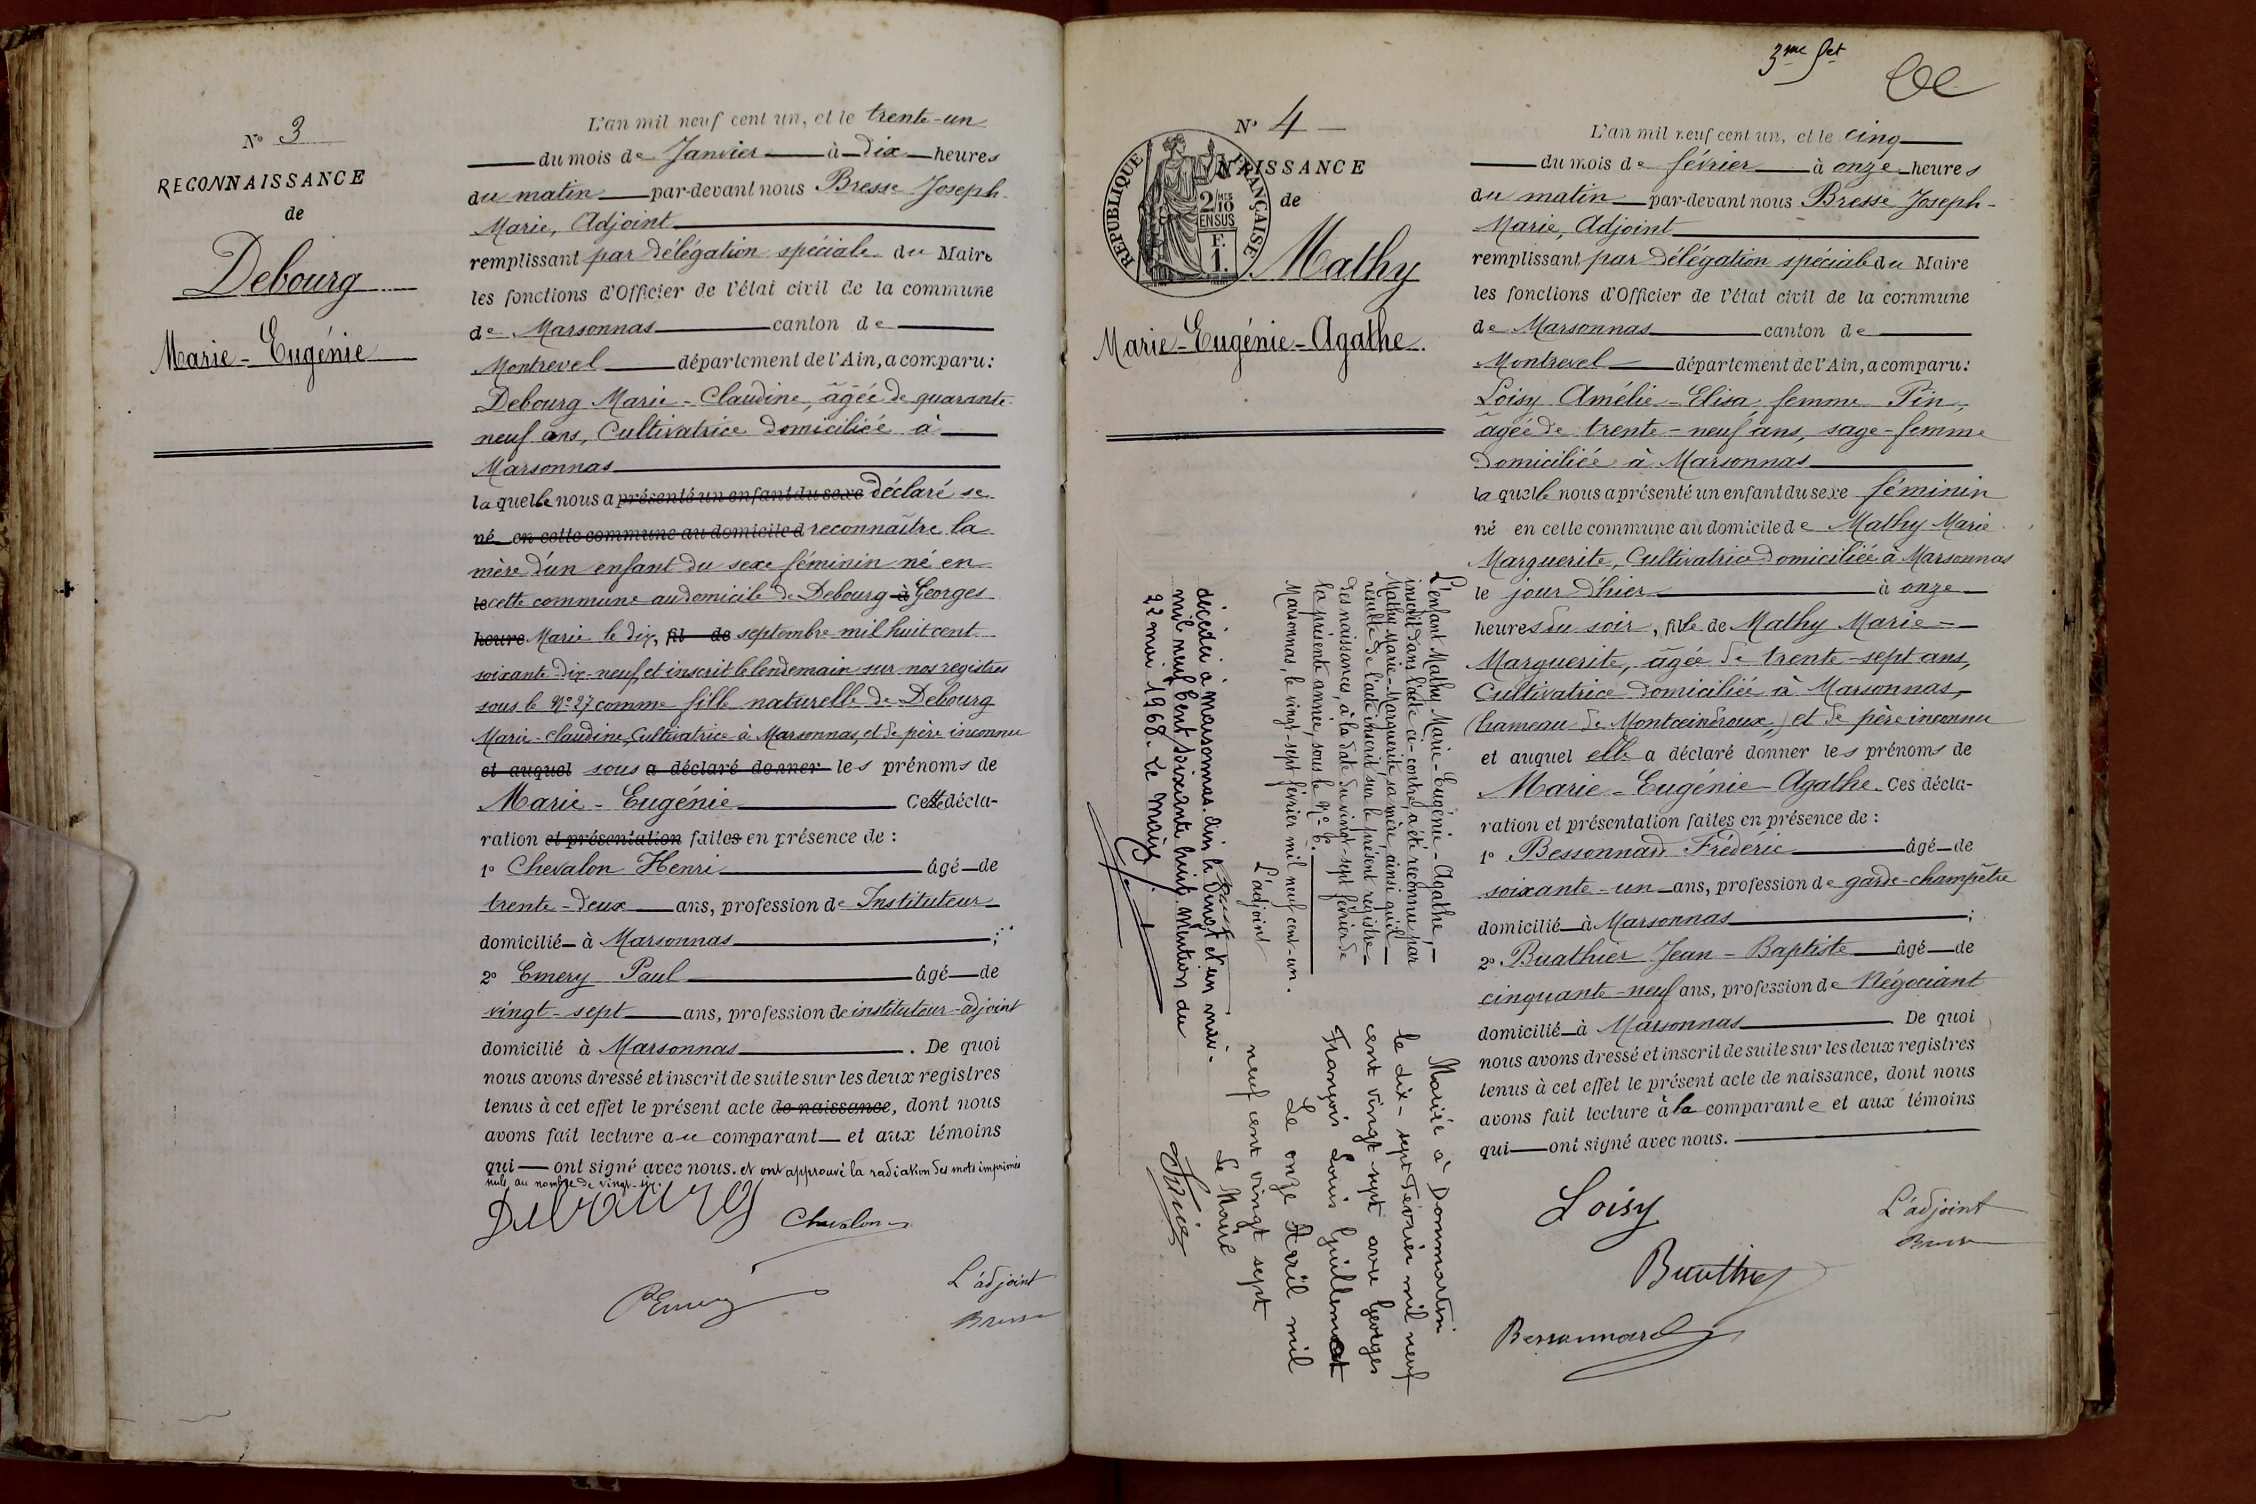 N° 3
RECONNAISSANCE
de
Debourg
Marie - Eugénie
L'an mil neuf cent un, et le trente-un
du mois de Janvier à dix heures
du matin par-devant nous Bresse Joseph
Marie, Adjoint
remplissant par délégation spéciale du Maire
les fonctions d'Officier de l'état civil de la commune
de Marsonnas canton de
Montrevel département de l'Ain, a comparu :
Debourg Marie - Claudine, âgée de quarante
neuf ans, Cultivatrice domiciliée à
Marsonnas
laquelle nous a présenté un enfant du sexe déclaré se
né en cette commune au domicile d reconnaître la
mère d'un enfant du sexe féminin né en
le cette commune au domicile de Debourg à Georges
heure Marie le dix, fil de septembre mil huit cent
soixante dix-neuf, et inscrit le lendemain sur nos registres
sous le N° 27 comme fille naturelle de Debourg
Marie-Claudine, Cultivatrice à Marsonnas, et de père inconnu
et auquel sous a déclaré donner les prénoms de
Marie - Eugénie Cette décla-
ration et présentation faites en présence de :
1° Chevalon Henri âgé de
trente-deux ans, profession de Instituteur
domicilié à Marsonnas ;
2° Emery Paul âgé de
vingt-sept ans, profession de instituteur-adjoint
domicilié à Marsonnas . De quoi
nous avons dressé et inscrit de suite sur les deux registres
tenus à cet effet le présent acte de naissance, dont nous
avons fait lecture au comparant et aux témoins
qui ont signé avec nous. et ont approuvé la radiation des mots imprimés
nuls au nombre de vingt-six.
Debourg
Chevalon
PEmery
L'adjoint
Bresse
3me fet
N° 4
NAISSANCE
de
REPUBLIQUE FRANÇAISE
2/10
MES
EN SUS
F.
1.
Mathy
Marie-Eugénie-Agathe.
L'enfant Mathy Marie-Eugénie-Agathe,
inscrit dans l'acte ci-contre, a été reconnu par
Mathy Marie-Marguerite, sa mère, ainsi qu'il
résulte de l'acte inscrit sur le présent registre
des naissances, à la date du vingt-sept février de
la présente année, sous le N° 6.
Marsonnas, le vingt-sept février mil neuf cent-un.
L'adjoint
Bresse
décédée à Marsonnas. Ain le vingt et un mai.
mil neuf cent soixante huit. Mention du
22 mai 1968. Le Maire
Mariée à Dommartin
le dix-sept Février mil neuf
cent vingt-sept avec Georges
François Louis Guillemot
Le onze Avril mil
neuf cent vingt sept
Le Maire
L'an mil neuf cent un, et le cinq
du mois de février à onze heures
du matin par-devant nous Bresse Joseph-
Marie, Adjoint
remplissant par délégation spéciale du Maire
les fonctions d'Officier de l'état civil de la commune
de Marsonnas canton de
Montrevel département de l'Ain, a comparu :
Loisy Amélie-Elisa, femme Pin,
âgée de trente-neuf ans, sage-femme
domiciliée à Marsonnas
laquelle nous a présenté un enfant du sexe féminin
né en cette commune au domicile de Mathy Marie
Marguerite, Cultivatrice domiciliée à Marsonnas
le jour d'hier à onze
heures du soir, fille de Mathy Marie-
Marguerite, âgée de trente-sept ans,
Cultivatrice domiciliée à Marsonnas,
(hameau de Montceindroux,) et de père inconnu
et auquel elle a déclaré donner les prénoms de
Marie-Eugénie-Agathe. Ces décla-
ration et présentation faites en présence de :
1° Bessonnard Frédéric âgé de
soixante-un ans, profession de garde-champêtre
domicilié à Marsonnas ;
2° Buathier Jean-Baptiste âgé de
cinquante-neuf ans, profession de Négociant
domicilié à Marsonnas De quoi
nous avons dressé et inscrit de suite sur les deux registres
tenus à cet effet le présent acte de naissance, dont nous
avons fait lecture à la comparante et aux témoins
qui ont signé avec nous.
Loisy
L'adjoint
Bresse
Buathier
Bessonnard